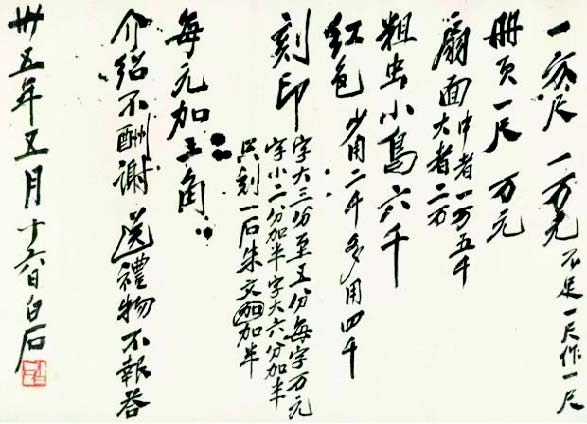 一方尺 一万元 不足一尺作一尺
册页一尺 万元
扇面 中者一万五千
大者二万
粗虫小鸟六千
红色 少用二千多用四千
刻印 字大三分至五分每字万元
字小二分加半字大六分加半
只刻一石朱文加加半
每元加三角
介绍不酬谢 送禮物不報答
卅五年五月十六日白石